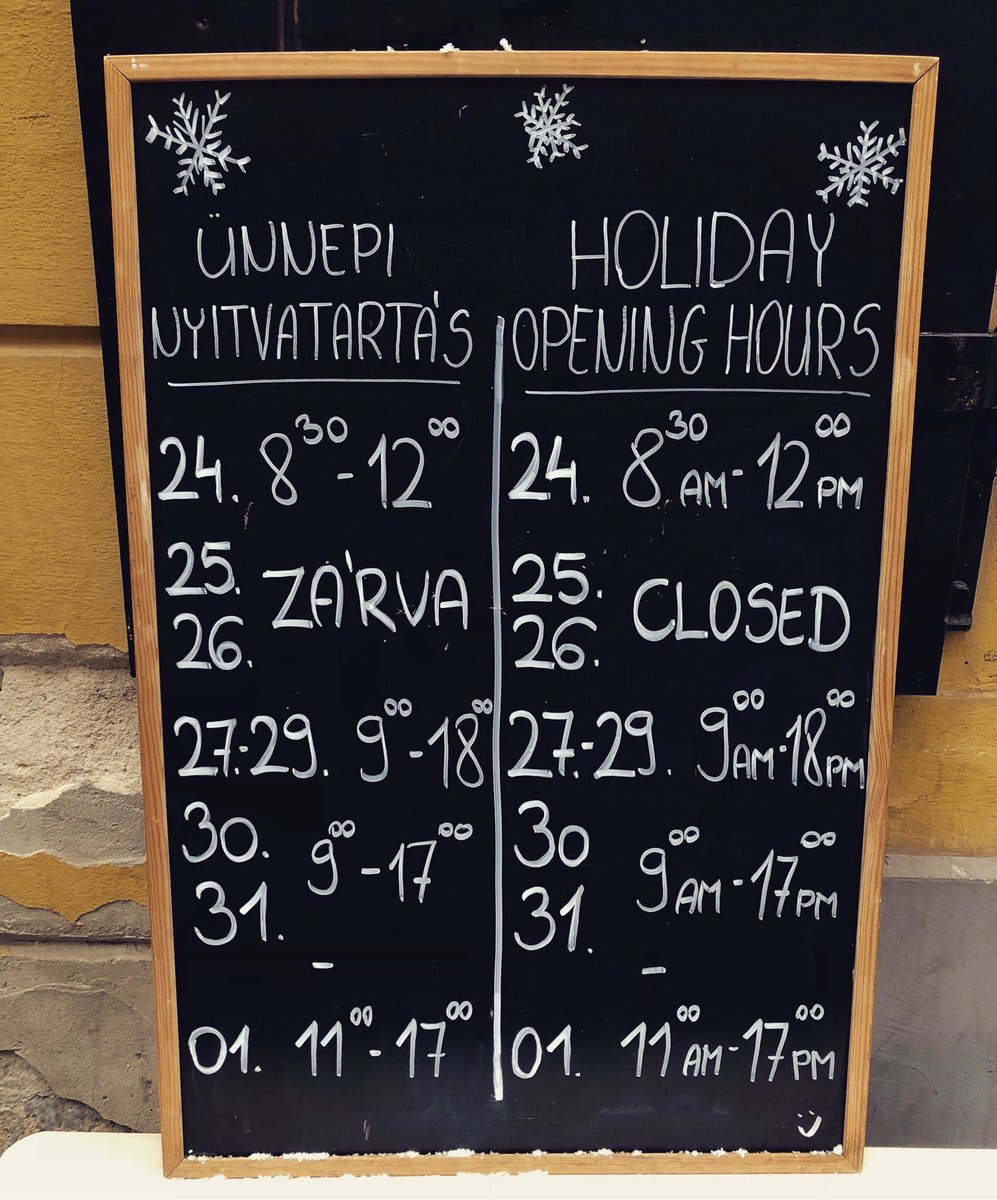 ÜNNEPI
NYITVATARTÁS
24. 8³⁰ - 12⁰⁰
25.
26.
ZÁRVA
27.-29. 9⁰⁰-18⁰⁰
30.
31.
9⁰⁰ - 17⁰⁰
-
01. 11⁰⁰ - 17⁰⁰
HOLIDAY
OPENING HOURS
24. 8³⁰ AM - 12⁰⁰ PM
25.
26.
CLOSED
27.-29. 9⁰⁰ AM - 18⁰⁰ PM
30
31.
9⁰⁰ AM - 17⁰⁰ PM
-
01. 11⁰⁰ AM - 17⁰⁰ PM